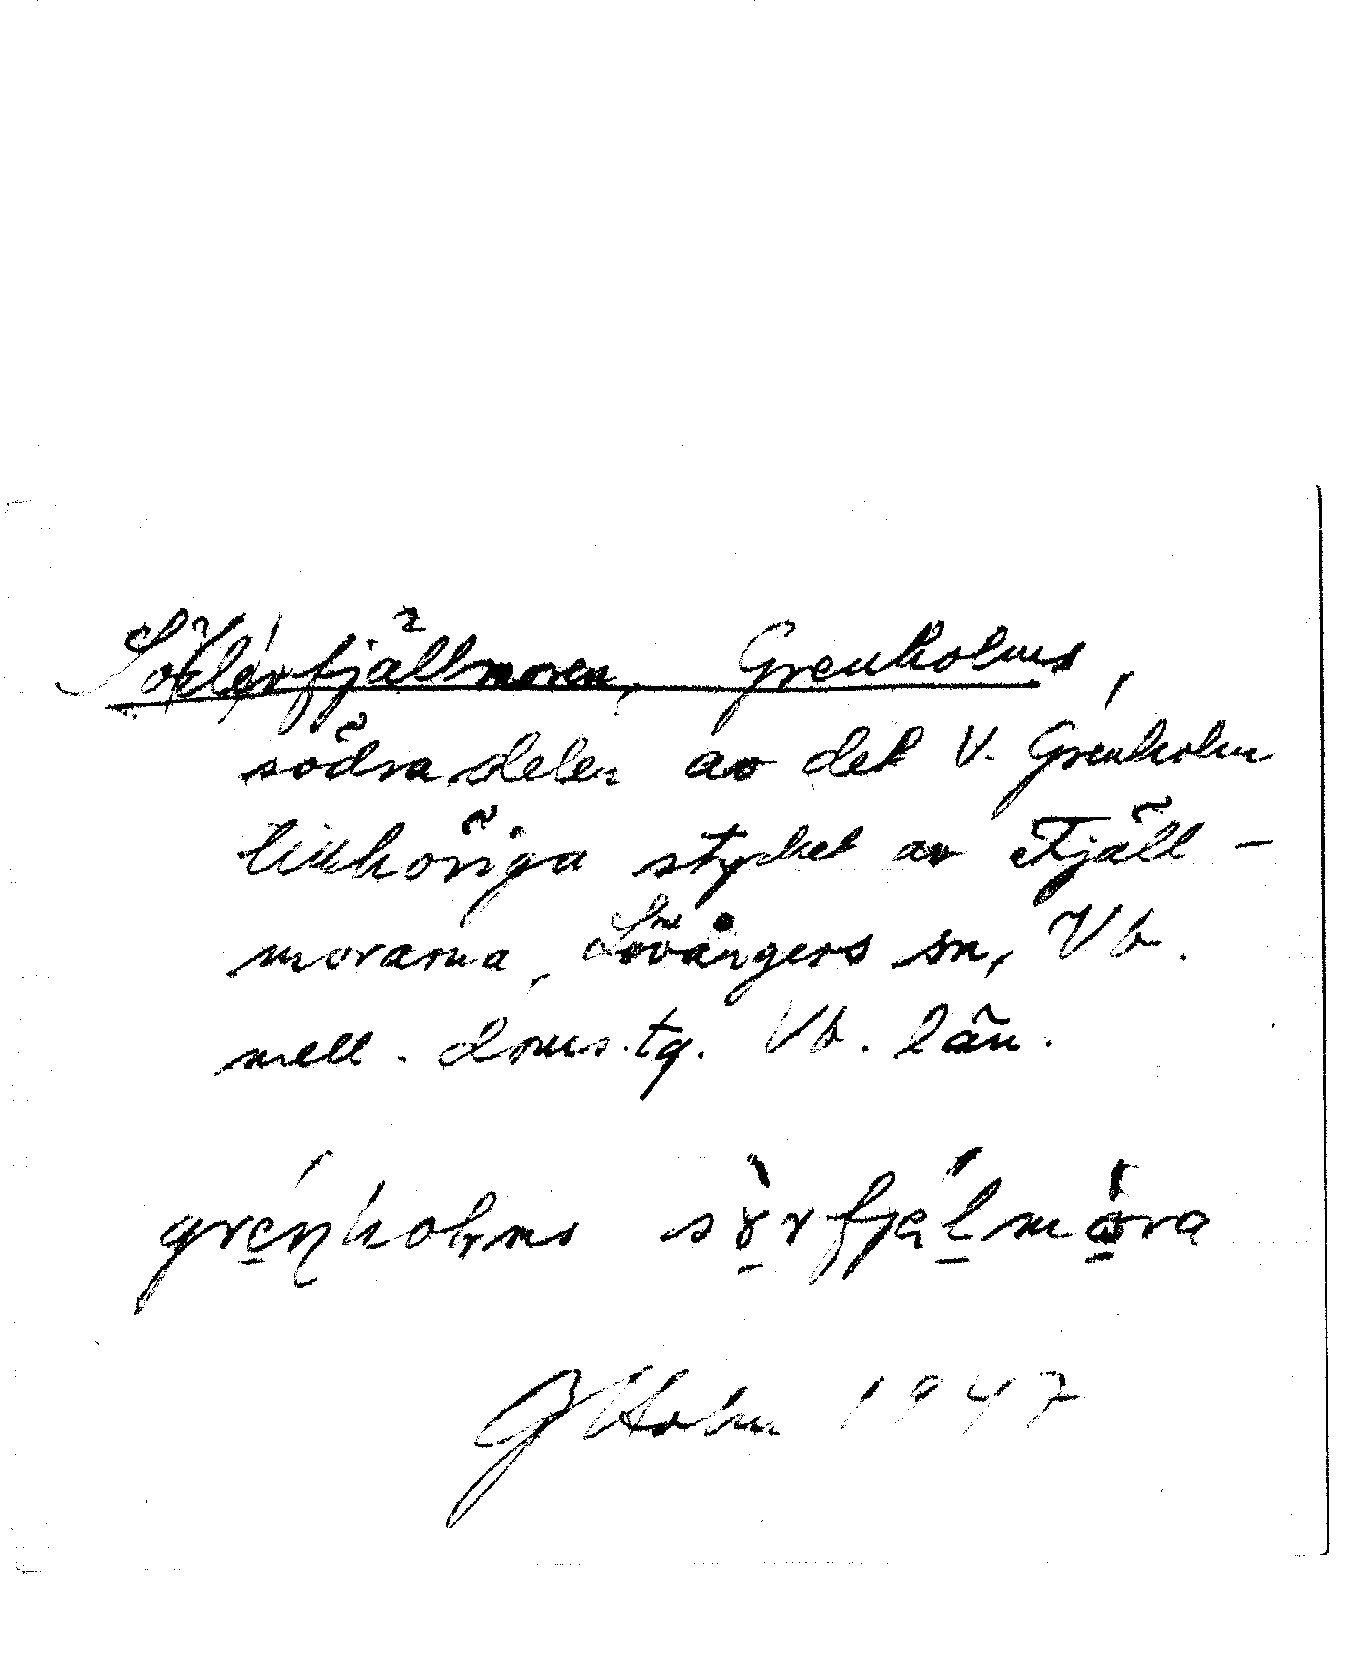 Söderfjällmoren, Grenholms,
södra delen av det V. Grenholm
tillhöriga stycket av Fjäll-
morarna, Lövångers sn, Vb.
mell. doms.tg. Vb. län.
gre̱ŋholms sö̱rfjäḻmo̱ra
G Holm 1947